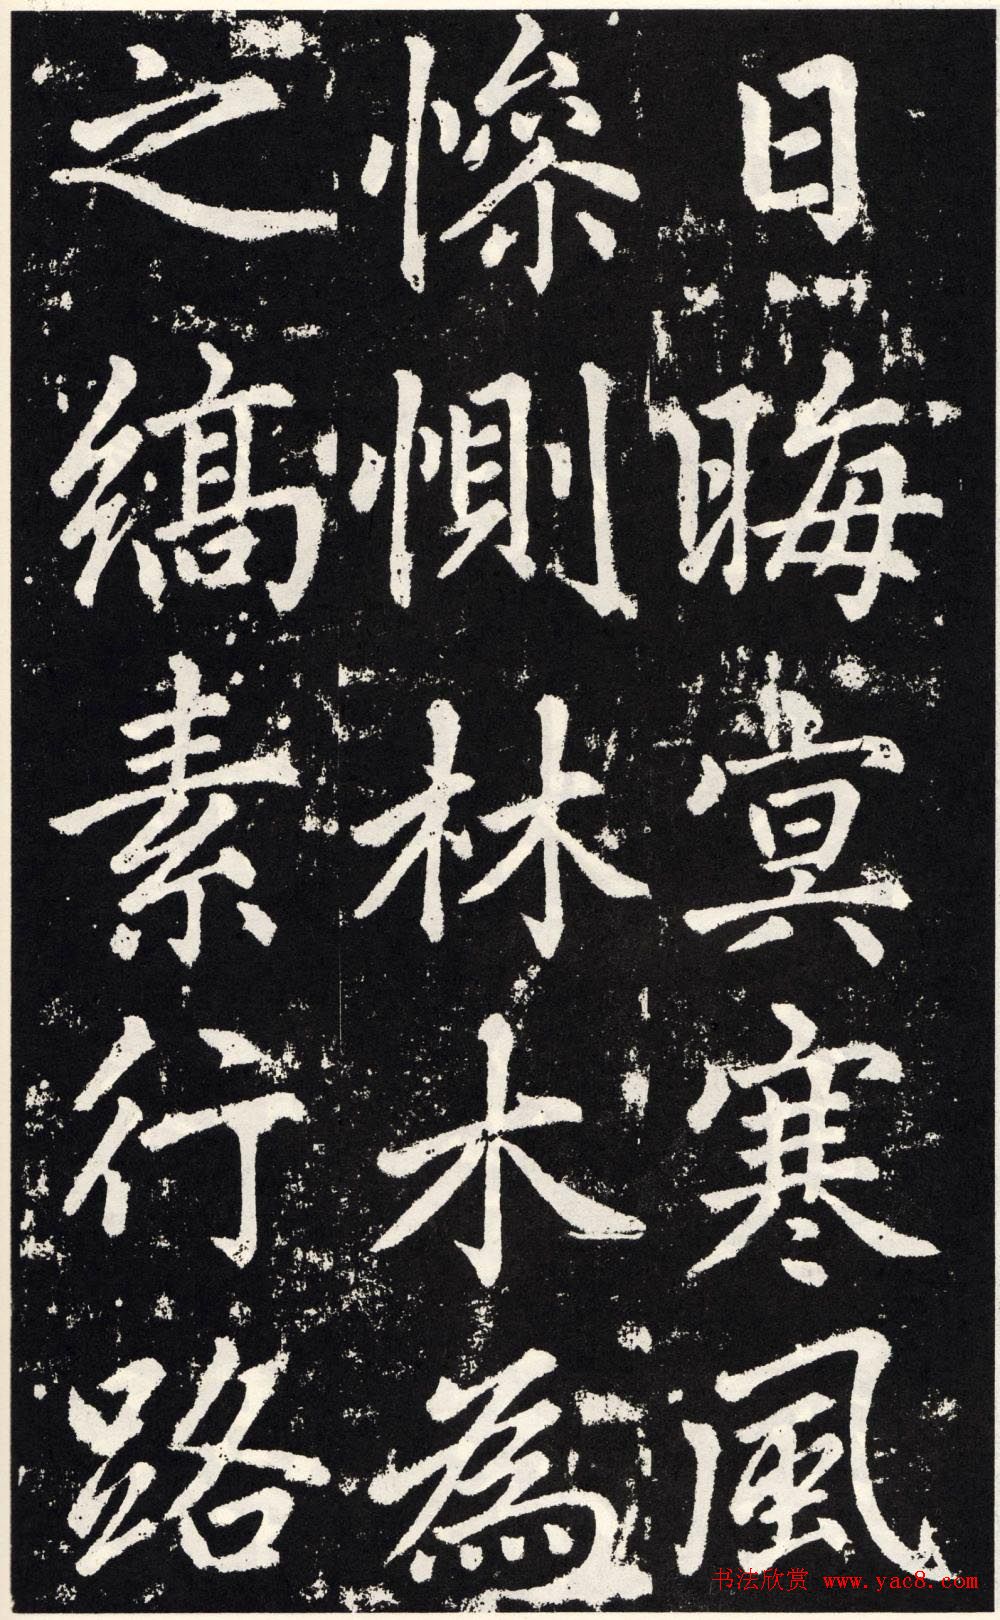 日晦冥寒風
慘惻林木為
之縞素行路
书法欣赏 www.yac8.com